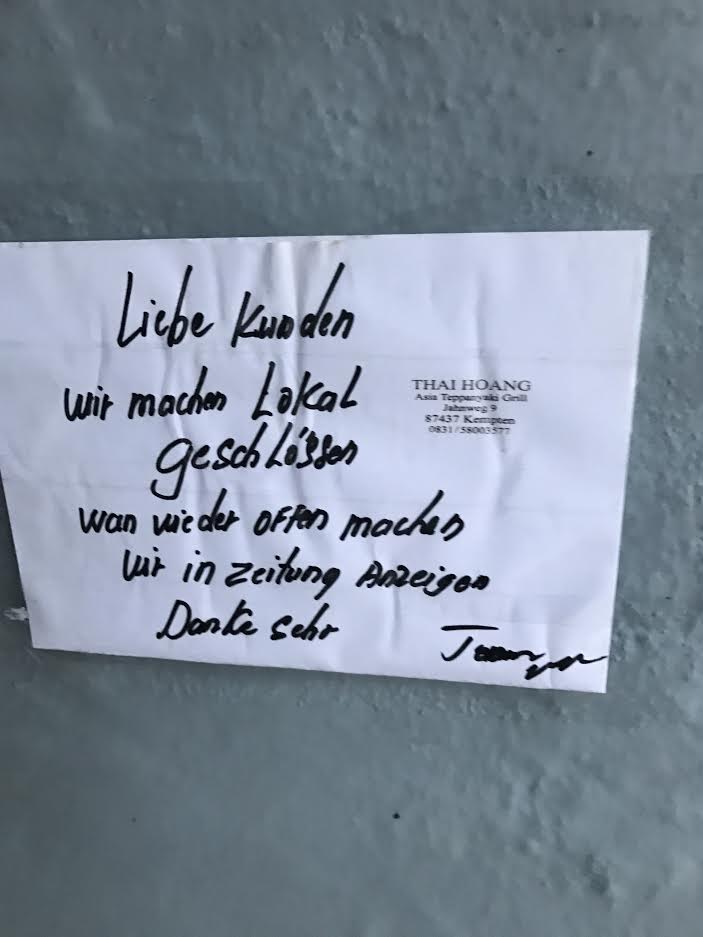 Liebe Kunden
wir machen Lokal
geschlössen
wan wieder offen machen
wir in zeitung Anzeigen
Danke sehr
THAI HOANG
Asia Teppanyaki Grill
Jahnweg 9
87437 Kempten
0831/58003577